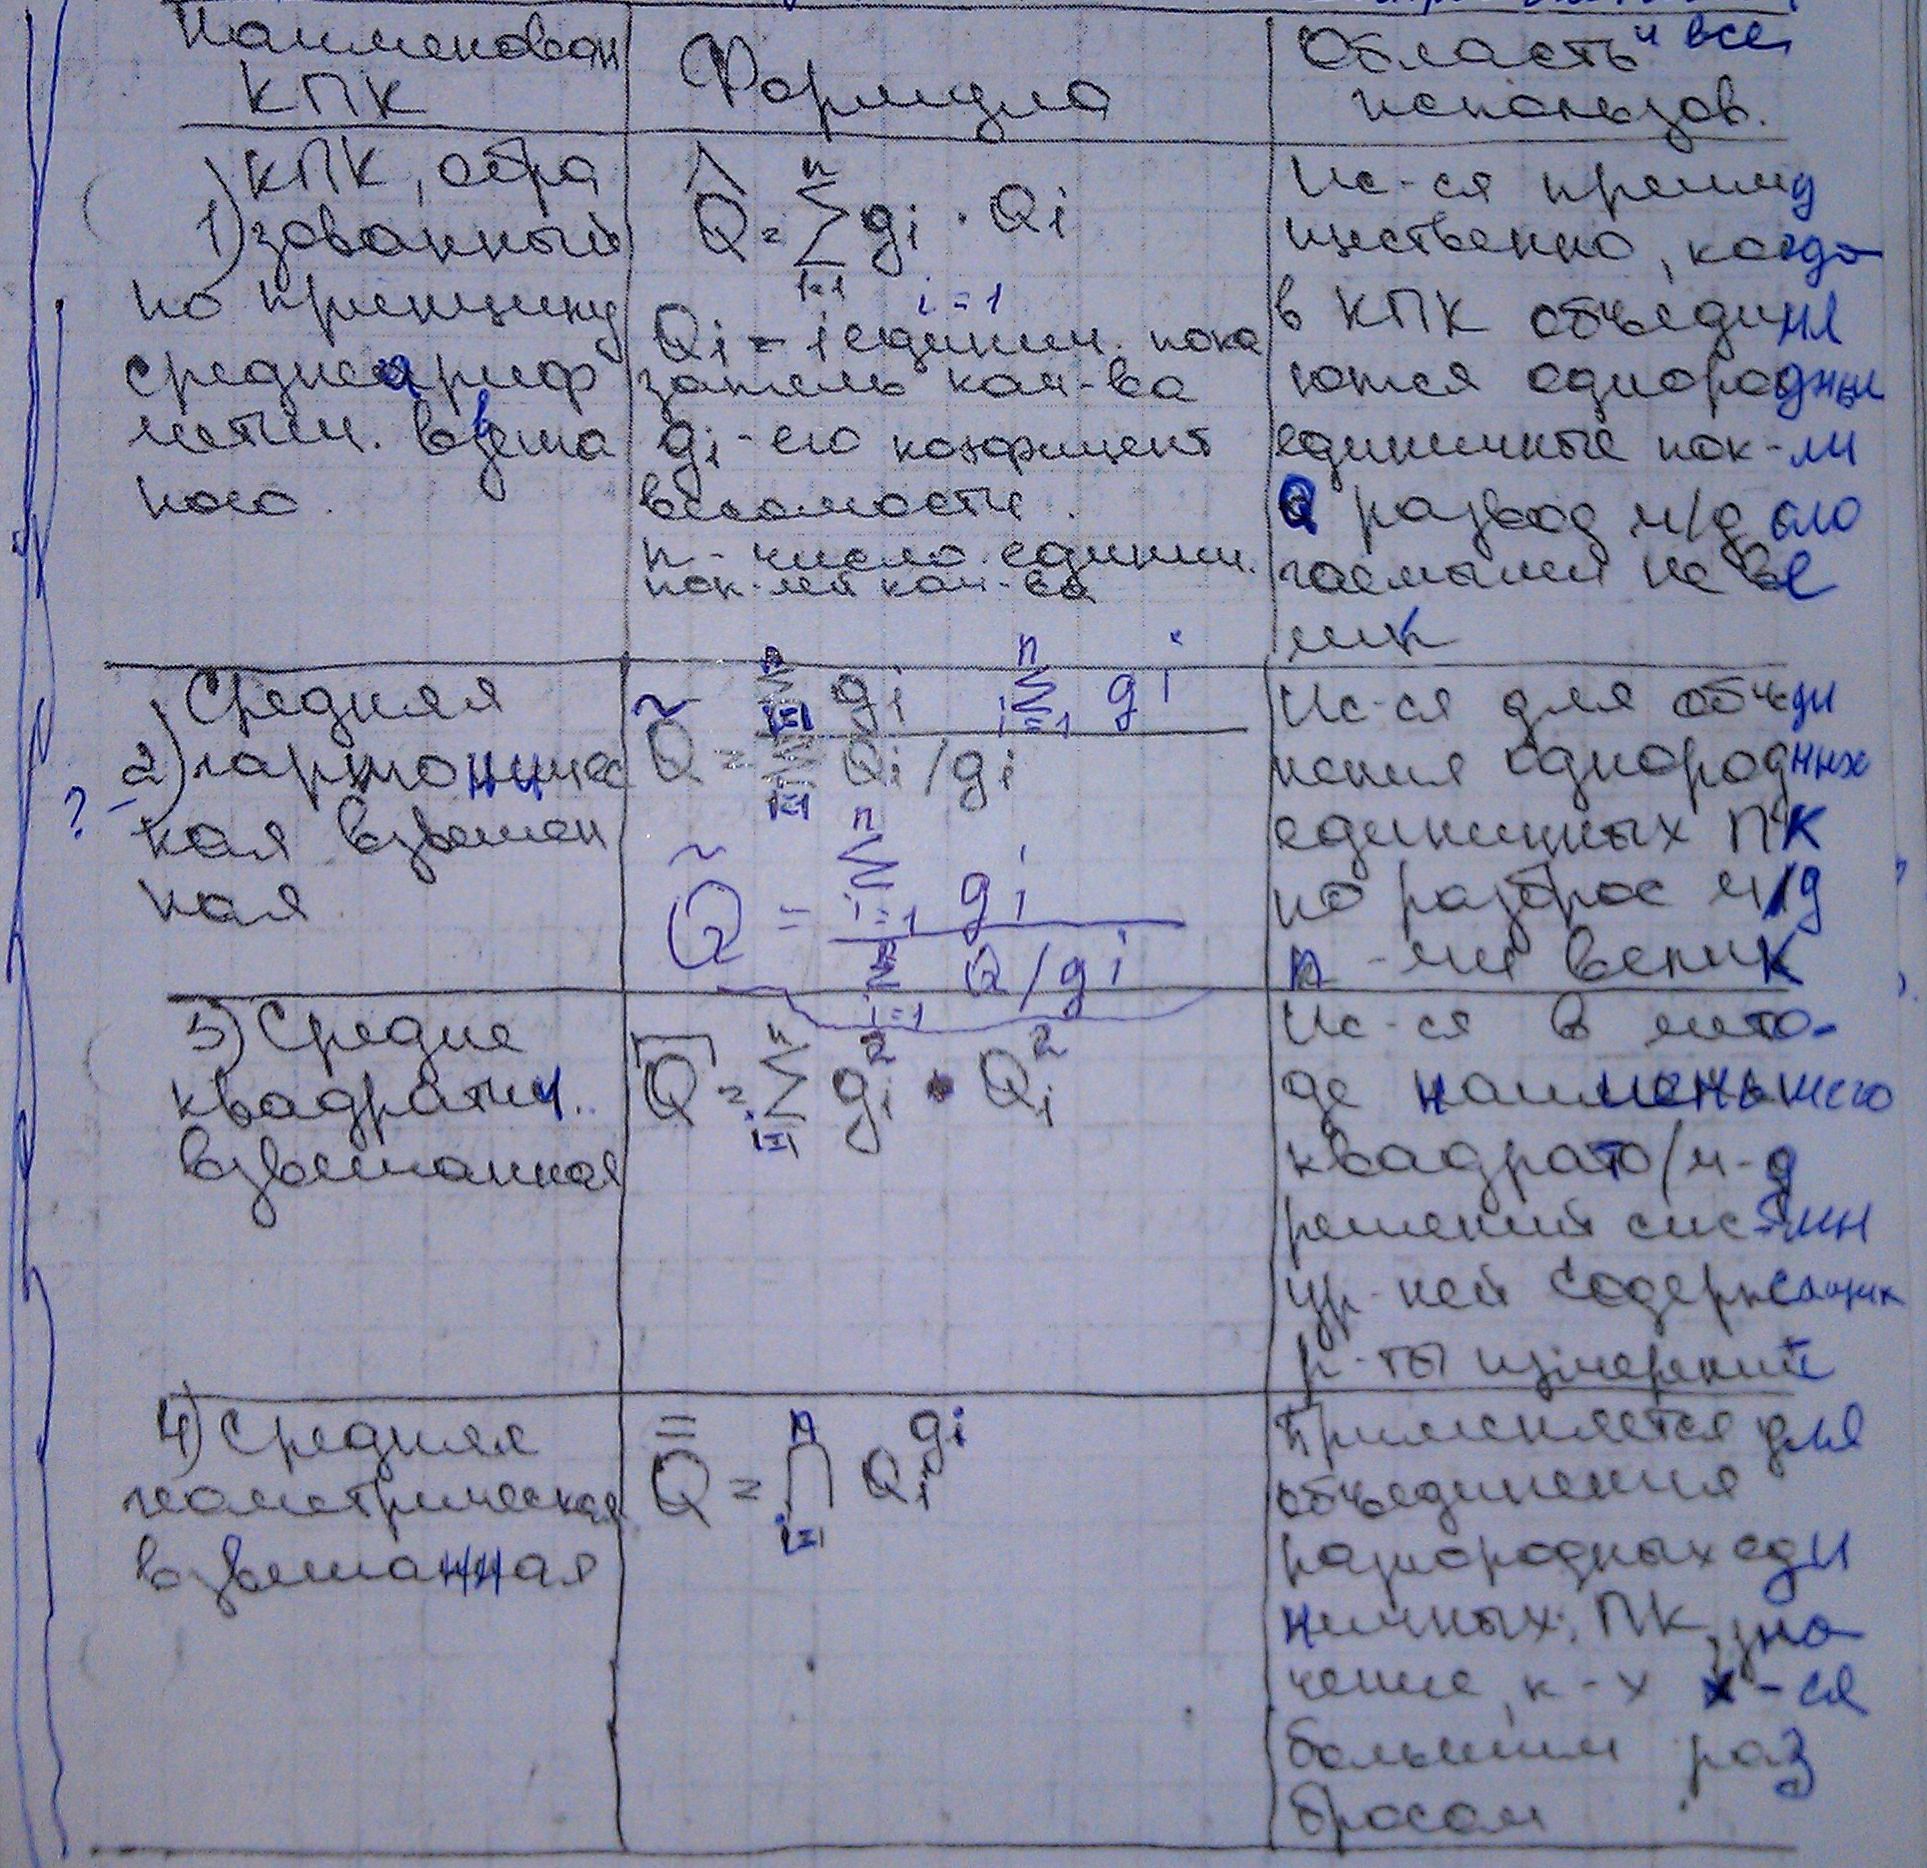 Наименован
КПК
Формула
Область и все
использов.
КПК, обра
1) зованный
по принципу
среднеариф
метич. взвеша
ного.
n
Q̂ = Σ gi · Qi
i=1
i=1
Qi = i единич. пока
затель кач-ва
gi - его коэфициент
весомости.
n - число единич.
пок-лей кач-ва
Ис-ся преиму
щественно, когда
в КПК объединя
ются однородные
единичные пок-ли
развод м/д сла
гаемыми не ве
лик
Средняя
2) гармоничес
?
кая взвешен
ная
n
Σ gi
i=1
n
Σ gi
i=1
Q̃ = Σ Qi / gi
i=1
n
Σ gi
i=1
Q̃ =
n
Σ Q / gi
i=1
Ис-ся для объеди
нения однородных
единичных ПК
но разброс м/д
п-ми велик
3) Средне
квадратич.
взвешанная
n
Q = Σ gi² · Qi²
i=1
Ис-ся в мето-
де наименьшего
квадрата/м-д
решений
ур-ней содержащих
р-ты измерений
4) Средняя
геометрическая
взвешанная
n
Q = ∏ Qi^gi
i=1
Применяется для
объединения
разнородных еди
ничных ПК, зна
чение, к-х х-ся
большим раз
бросом